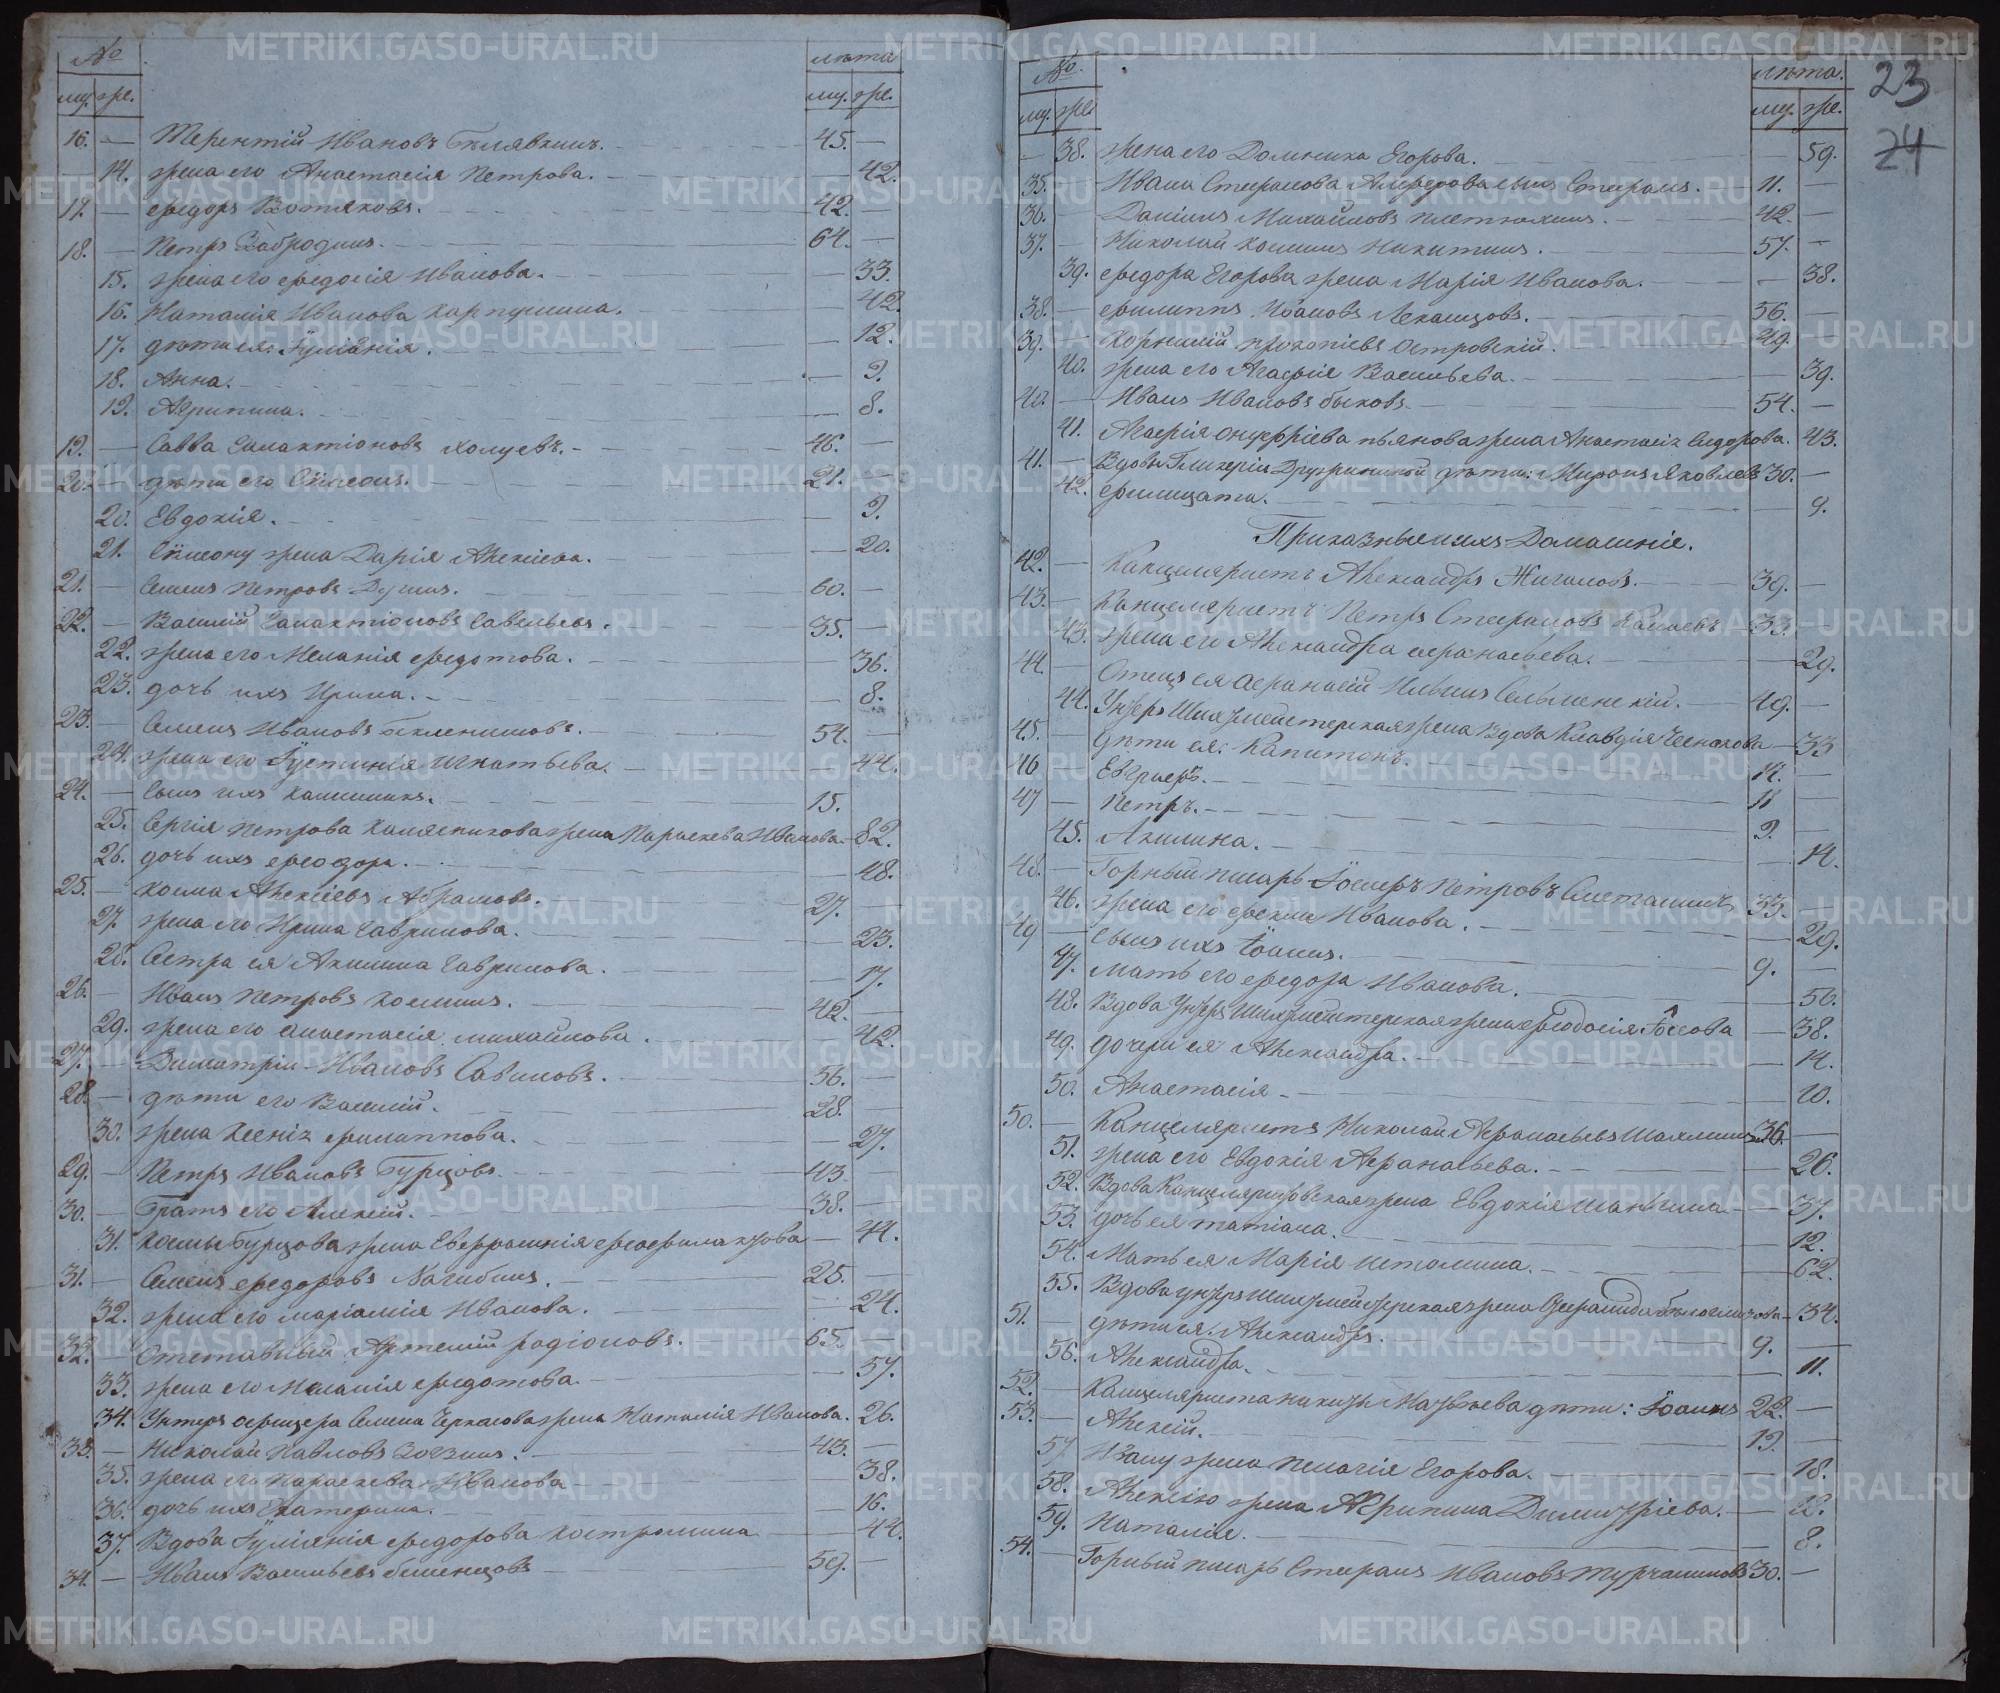 № лѣта
му. же. му. же.
16. — Терентій Ивановъ 45. —
— 14. жена его Анастасія Петрова. — 42.
17. — Ѳедоръ Вотяковъ. 42. —
18. — Петръ Забродинъ. 64. —
15. жена его Ѳедосія Иванова. — 33.
16. Наталія Иванова Карпушина. — 42.
17. дѣти ея: Іуліанія. — 12.
18. Анна. — 9.
19. Агрипина. — 8.
19. — Савва Галактіоновъ Холуевъ. 46. —
20. — дѣти его Сѷмеонъ. 21. —
20. Евдокія. — 9.
21. Сѷмеону жена Дарія Алексіева. — 20.
21. — Семенъ Петровъ Душинъ. 60. —
22. — Василій Галактіоновъ Савельевъ. 35. —
22. жена его Меланія Ѳедотова. — 36.
23. дочь ихъ Ирина. — 8.
23. — Семенъ Ивановъ 54. —
24. жена его Іустинія Игнатьева. — 44.
24. — сынъ ихъ Каллиникъ. 15.
25. Сергія Петрова жена Параскева Иванова — 82.
26. дочь ихъ Ѳеодора. — 48.
25. — Косма Алексіевъ Абрамовъ. 27. —
27. жена его Ирина Гаврилова. — 23.
28. Сестра ея Акилина Гаврилова. — 17.
26. — Иванъ Петровъ Косминъ. 42. —
29. жена его Анастасія Михайлова. — 42.
27. — Димитрій Ивановъ Савиновъ. 56. —
28. — дѣти его Василій. 28. —
30. жена Ксенія Филиппова. — 27.
29. — Петръ Ивановъ Бурцовъ. 43. —
30. — Братъ его Алексій. 38. —
31. Космы Бурцова жена — 44.
31. — Семенъ Ѳедоровъ Нагибинъ. 25. —
32. жена его Маріамія Иванова. — 24.
32. — Отставный Артемій Родіоновъ. 65. —
33. жена его Меланія Ѳедотова. — 57.
34. Унтеръ офицера Семена Черкасова жена Наталія Иванова. 26.
33. — Николай Павловъ 43. —
35. жена его Параскева Иванова — 38.
36. дочь ихъ Екатерина. — 16.
37. Вдова Іуліянія Ѳедорова Костромина — 44.
34. — Иванъ Васильевъ 59. —
№. лѣта.
му. же. му. же.
23
24
— 38. жена его Домника Егорова. — 59.
35. Ивана Стефанова Алферова сынъ Стефанъ. 11. —
36. — Даніилъ Михайловъ Плетюхинъ. 42. —
37. — Николай Косминъ Никитинъ. 57. —
39. Ѳедора Егорова жена Марія Иванова. — 38.
38. — Филиппъ Ивановъ Леканцовъ. 56. —
39. — Корнилій Прокопіевъ Островскій. 49. —
40. жена его Агафія Васильева. — 39.
40. — Иванъ Ивановъ Быковъ. 54. —
41. Агафія Онуфріева Пьянова жена Анастасія Сидорова. 43.
41. — Вдовы Гликеріи Дружининой дѣти: Миронъ Яковлевъ 30. —
42. Филицата. — 9.
Приказныя и ихъ Домашніе.
42. — Канцеляристъ Александръ Жигаловъ. 39. —
43. — Канцеляристъ Петръ Стефановъ Канаевъ 33. —
43. жена его Александра Афанасьева. — 29.
44. — Отецъ ея Афанасій Ильинъ 49. —
44. Унтеръ Шихтмейстерская жена вдова Клавдія Чеснокова — 33
45. — дѣти ея: Капитонъ. 14. —
46 Евграфъ. 11
47 — Петръ. 9. —
45. Акилина. — 14.
48. — Горный писарь Іосифъ Петровъ Сметанинъ 33. —
46. жена его Ѳекла Иванова. — 29.
49 — сынъ ихъ Іоаннъ. 9. —
47. Мать его Ѳедора Иванова. — 56.
48. Вдова Унтеръ Шихтмейстерская жена Ѳеодосія — 38.
49. дочери ея Александра. — 14.
50. Анастасія — 10.
50. — Канцеляристъ Николай Афанасьевъ 36. —
51. жена его Евдокія Афанасьева. — 26.
52. Вдова Канцеляристовская жена Евдокія Шаньгина — 37.
53. дочь ея Татіана. — 12.
54. Мать ея Марія Истомина. — 62.
55. Вдова Унтеръ Шихтмейстерская жена — 34.
51. — дѣти ея: Александръ. 9. —
56. Александра. — 11.
52. — Канцеляриста дѣти: Іоаннъ 22. —
53. — Алексій. 19. —
57 Ивану жена Пелагія Егорова. — 18.
58. Алексію жена Агрипина Димитріева. —
59. Наталія. — 8.
54. — Горный писарь Стефанъ Ивановъ Турчаниновъ 30. —
METRIKI.GASO-URAL.RU